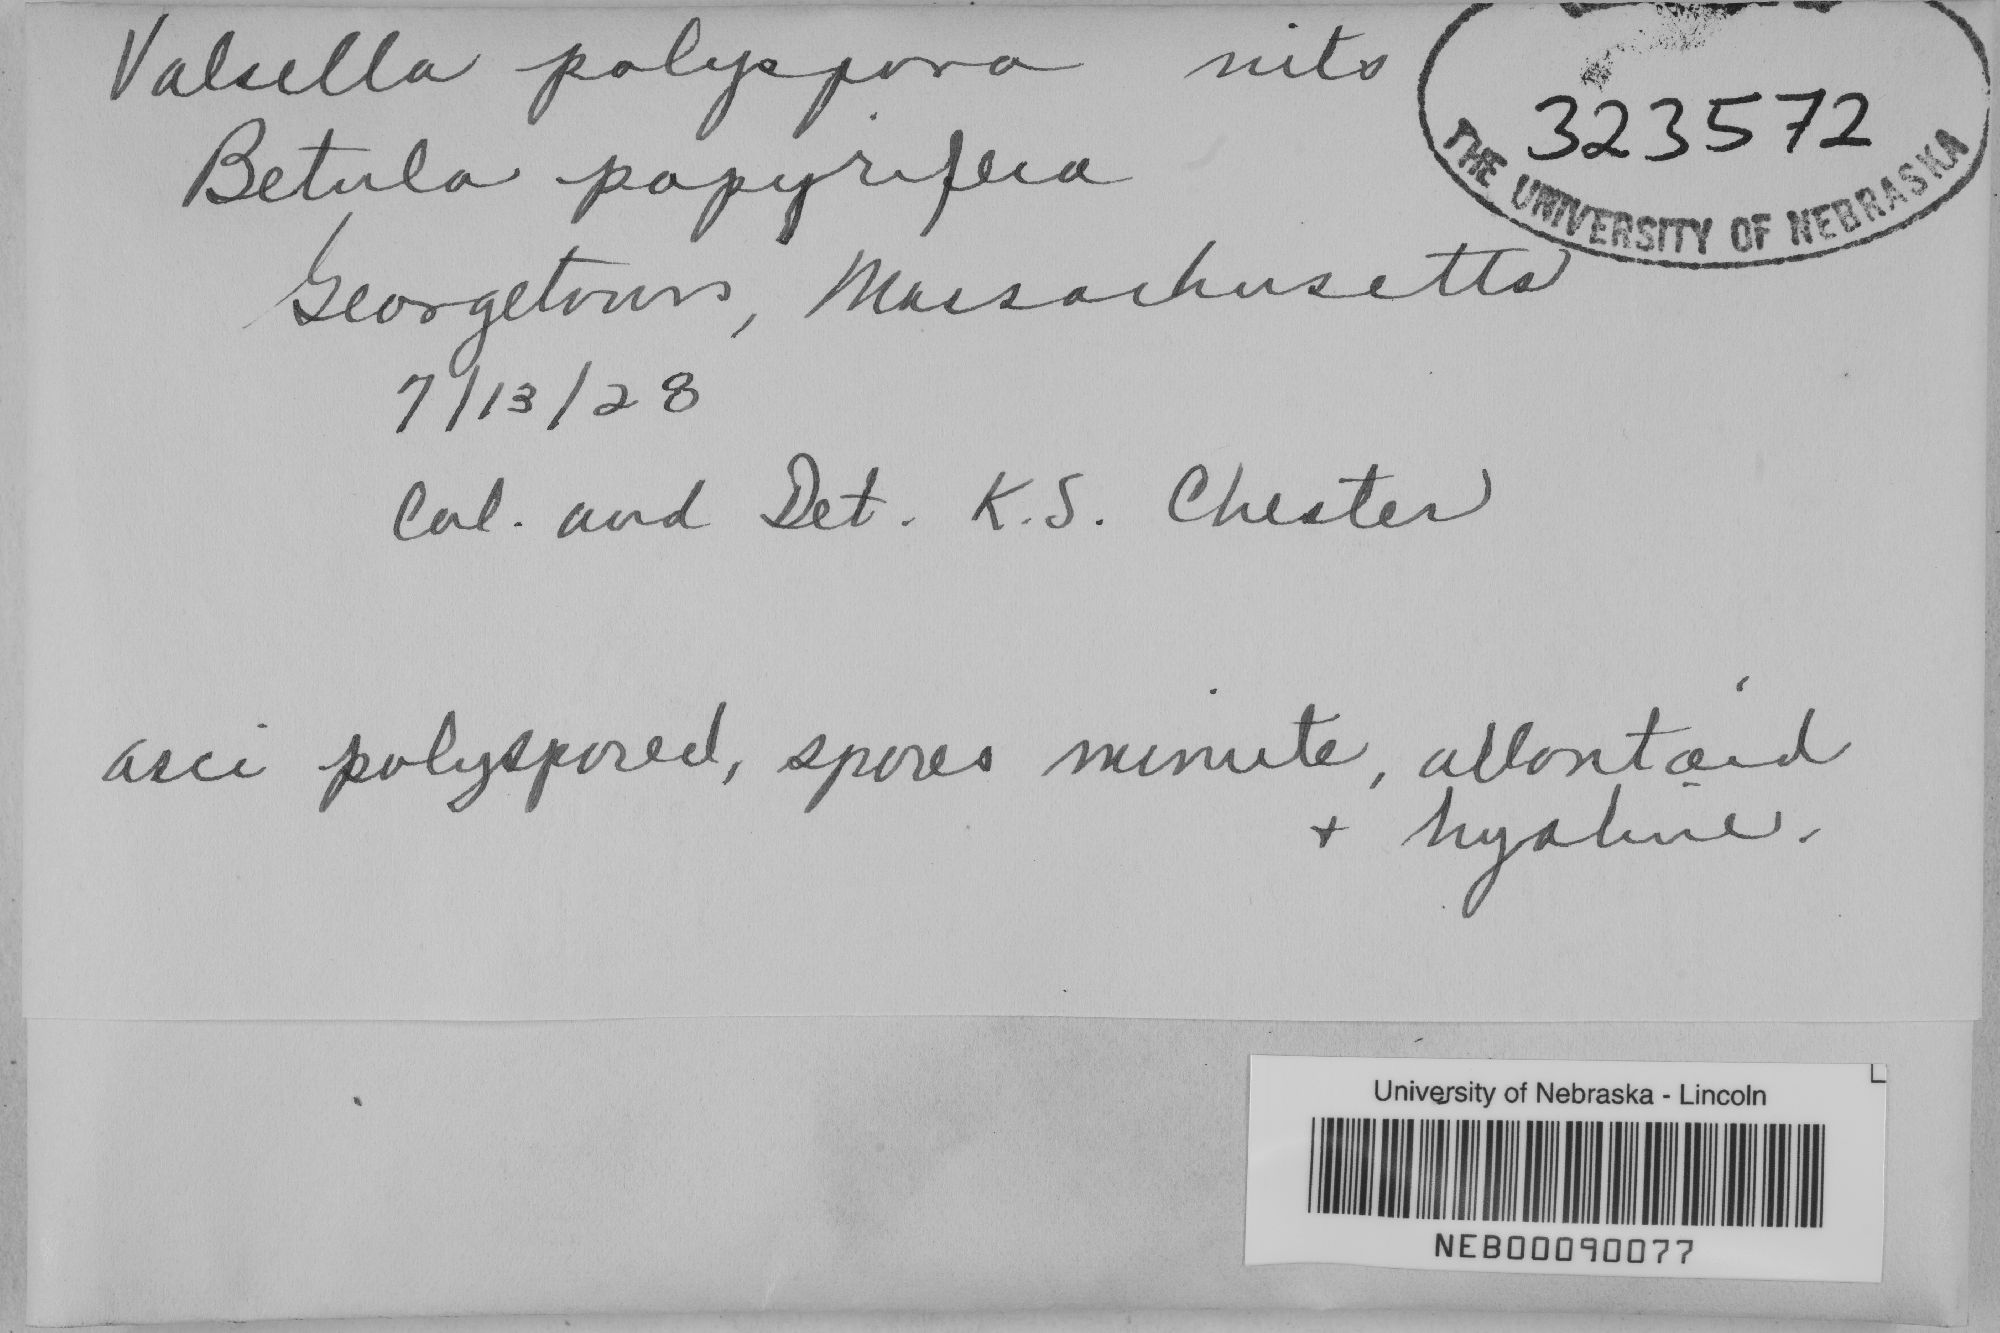 Valsella polyspora nits
323572
THE UNIVERSITY OF NEBRASKA
Betula papyrifera
Georgetown, Massachusetts
7/13/28
Col. and Det. K.S. Chester
asci polyspored, spores minute, allantoid
+ hyaline.
University of Nebraska - Lincoln
NEB00090077